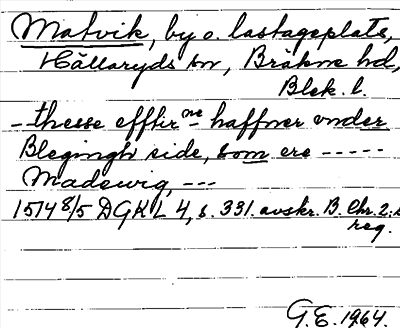 Matvik, by o. lastageplats,
Hällaryds sn, Bräkne hd,
Blek. l.
– thesse efftir ne haffner vnder
Blegingh side, som ere -----
Madewig, ---
1514 8/5 DGKL 4, s. 331. avskr. B. Chr. 2:s
reg.
G.E. 1964.